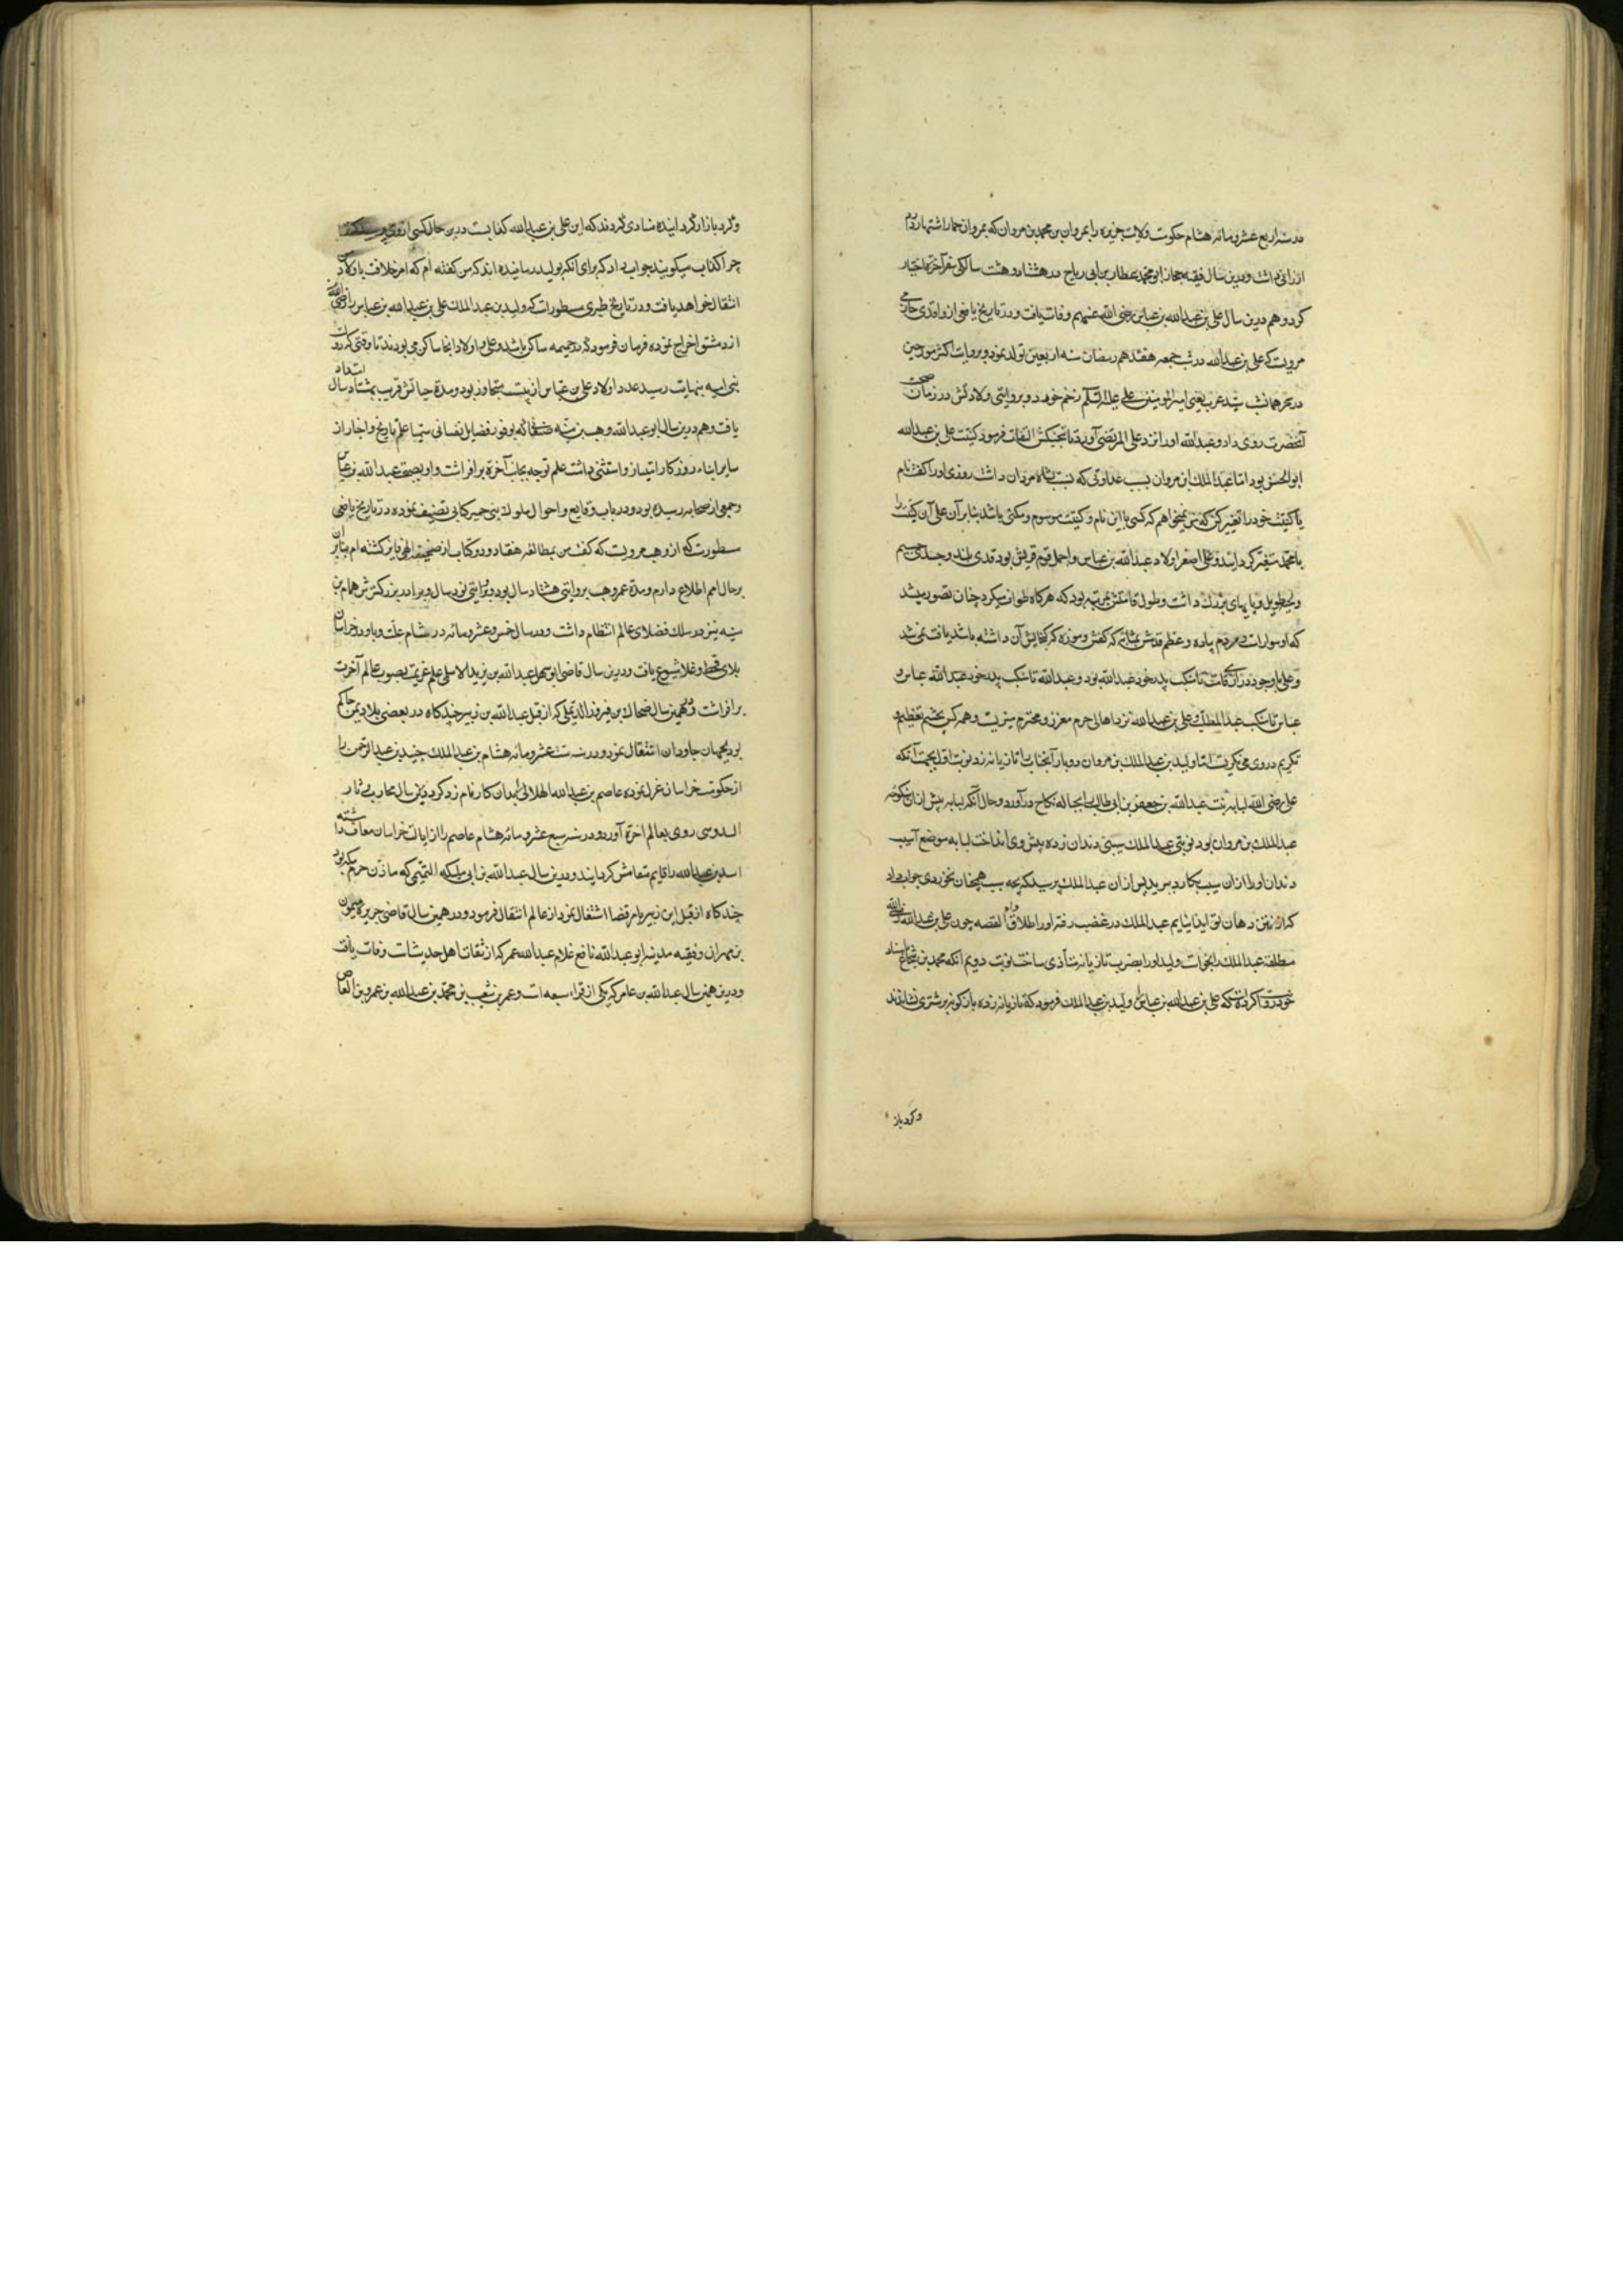 در سنه اربع عشر و مائه هشام حکومت ولایت جزیره را بمروان بن محمد بن مروان که بمروان حمار اشتهار دارد
ارزانی داشت و درین سال فقیه حجاز ابو محمد عطار بن ابی رباح در هشتاد و هشت سالگی سفر آخرة اختیار
کرد و هم درین سال علی بن عبدالله بن عباس رضی الله عنهم وفات یافت و در تاریخ یافعی از واقدی
مرویست که علی بن عبدالله در شب جمعه هفدهم رمضان سنه اربعین تولد نمود و بروایت اکثر مورخین
در سحر همان شب سید عرب یعنی امیر المومنین علی علیه السلم زخم خورد و بروایتی ولادتش در زمان صحت
آنحضرت روی داد و عبدالله او را نزد علی المرتضی آورد تا تحنیکش التفات فرمود کنیت علی بن عبدالله
ابو الحسن بود اما عبد الملک بن مروان بسبب عداوتی که نسبت بشاه مردان داشت روزی او را گفت نام
یا کنیت خود را تغییر کن که من نمیخواهم که کسی با این نام و کنیت موسوم و مکنی باشد بنابر آن علی آن کنیت را
با محمد متغیر گردانید و علی اصغر اولاد عبدالله بن عباس و اجمل قوم قریش بود قدی بلند و جسدی جسیم
و لحیه طویل و پایهای بزرگ داشت و طول قامتش بمرتبه بود که هرگاه طواف میکرد چنان تصور میشد
که او سوارست و مردم پیاده و عظم قدمش بمثابه که کفش و موزه که گنجایش آن داشته باشد یافت نمی شد
و علی با وجود درازی قامت تا منکب پدر خود عبدالله بود و عبدالله تا منکب پدر خود عباس و
عباس تا منکب عبدالمطلب علی بن عبدالله نزد اهالی حرم معزز و محترم میزیست و همه کس بچشم تعظیم و
تکریم در وی می نگریست اما ولید بن عبدالملک بن مروان دو بار آنجناب را تازیانه زد نوبت اول بجهت آنکه
علی رضی الله لبابه بنت عبدالله بن جعفر بن ابی طالب را بحباله نکاح در آورد و حال آنکه لبابه پیش از آن منکوحه
عبدالملک بن مروان بود نوبتی عبدالملک سیبی دندان زده پیش وی انداخت لبابه موضع آسیب
دندان او را از آن سیب بکارد ببرید پس از آن عبدالملک پرسید که بچه سبب همچنان نخوردی جواب داد
که از نتن دهان تو ایذا یابم عبدالملک در غضب رفته او را طلاق داد القصه چون علی بن عبدالله رضی الله
مطلقه عبدالملک را بخواست ولید او را بضرب تازیانه متأذی ساخت نوبت دویم آنکه محمد بن شجاع باسناد
خود روا کرده است که علی بن عبدالله بن عباس را ولید بن عبدالملک فرمود که تازیانه زده باژگونه بر شتری نشاندند
و گرد باز
و گرد بازار گردانیده منادی کردند که این علی بن عبدالله کذابست درین حال کسی از وی پرسید که
چرا کذاب میگویند جواب داد که برای آنکه بولید رسانیده اند که من گفته ام که امر خلافت باولاد من
انتقال خواهد یافت و در تاریخ طبری مسطورات که ولید بن عبدالملک علی بن عبدالله بن عباس را رضی الله
از دمشق اخراج نموده فرمان فرمود که در حمیمه ساکن باشد و علی و اولاد آنجا ساکن می بودند تا وقتی که دولت
بنی امیه بنهایت رسید عدد اولاد علی بن عباس از بیست متجاوز بود و مدة حیاتش قریب بهشتاد سال امتداد
یافت و هم درین سال ابو عبدالله وهب بن منبه صنعانی که بوفور فضایل نفسانی سیما علم تاریخ و اخبار از
سایر ابناء روزکار امتیاز و استثنی داشت علم توجه بجانب آخرة برافراشت و او بصحبت عبدالله بن عباس
و جمعی از صحابه رسیده بود و در باب وقایع و احوال ملوک بنی حمیر کتابی تصنیف نموده در تاریخ یافعی
مسطورست که از وهب مرویست که گفت من بمطالعه هفتاد و دو کتاب از صحیفه الهی فایز گشته ام بنابر آن
بر حال امم اطلاع دارم و مدة عمر وهب بروایتی هشتاد سال بود و بروایتی نود سال و برادر بزرگترش همام بن
منبه نیز در سلک فضلای عالم انتظام داشت و در سال خمس و عشر و مائه در شام علت وبا و در خراسان
بلای قحط و غلا شیوع یافت و درین سال قاضی ابو سهل عبدالله بن یزید الاسلمی علم عزیمت بصوب عالم آخرت
برافراشت و در همین سال ضحاک بن فیروز الدیلمی که از قبل عبدالله بن زبیر چندگاه در بعضی بلاد یمن حاکم
بود بجهان جاودان انتقال نمود و در سنه ست عشر و مائه هشام بن عبدالملک جنید بن عبدالرحمن را
از حکومت خراسان عزل نموده عاصم بن عبدالله الهلالی را بدان کار نامزد کرد درین سال محارب بن دثار
السدوسی روی بعالم اخرة آورد و در سنه سبع عشر و مائه هشام عاصم را از ایالت خراسان معاف داشته
اسد بن عبدالله را قایم مقامش گردانید و درین سال عبدالله بن ابی ملیکه التیمی که مأذن حرم مکه بود
چندگاه از قبل ابن زبیر بامر قضا اشتغال نمود از عالم انتقال فرمود و در همین سال قاضی جزیره میمون
بن مهران و فقیه مدینه ابو عبدالله نافع غلام عبدالله عمر که از ثقات اهل حدیث است وفات یافت
و درین همین سال عبدالله بن عامر که یکی از قراء سبعه است و عمر بن شعیب بن محمد بن عبدالله بن عمرو بن العاص